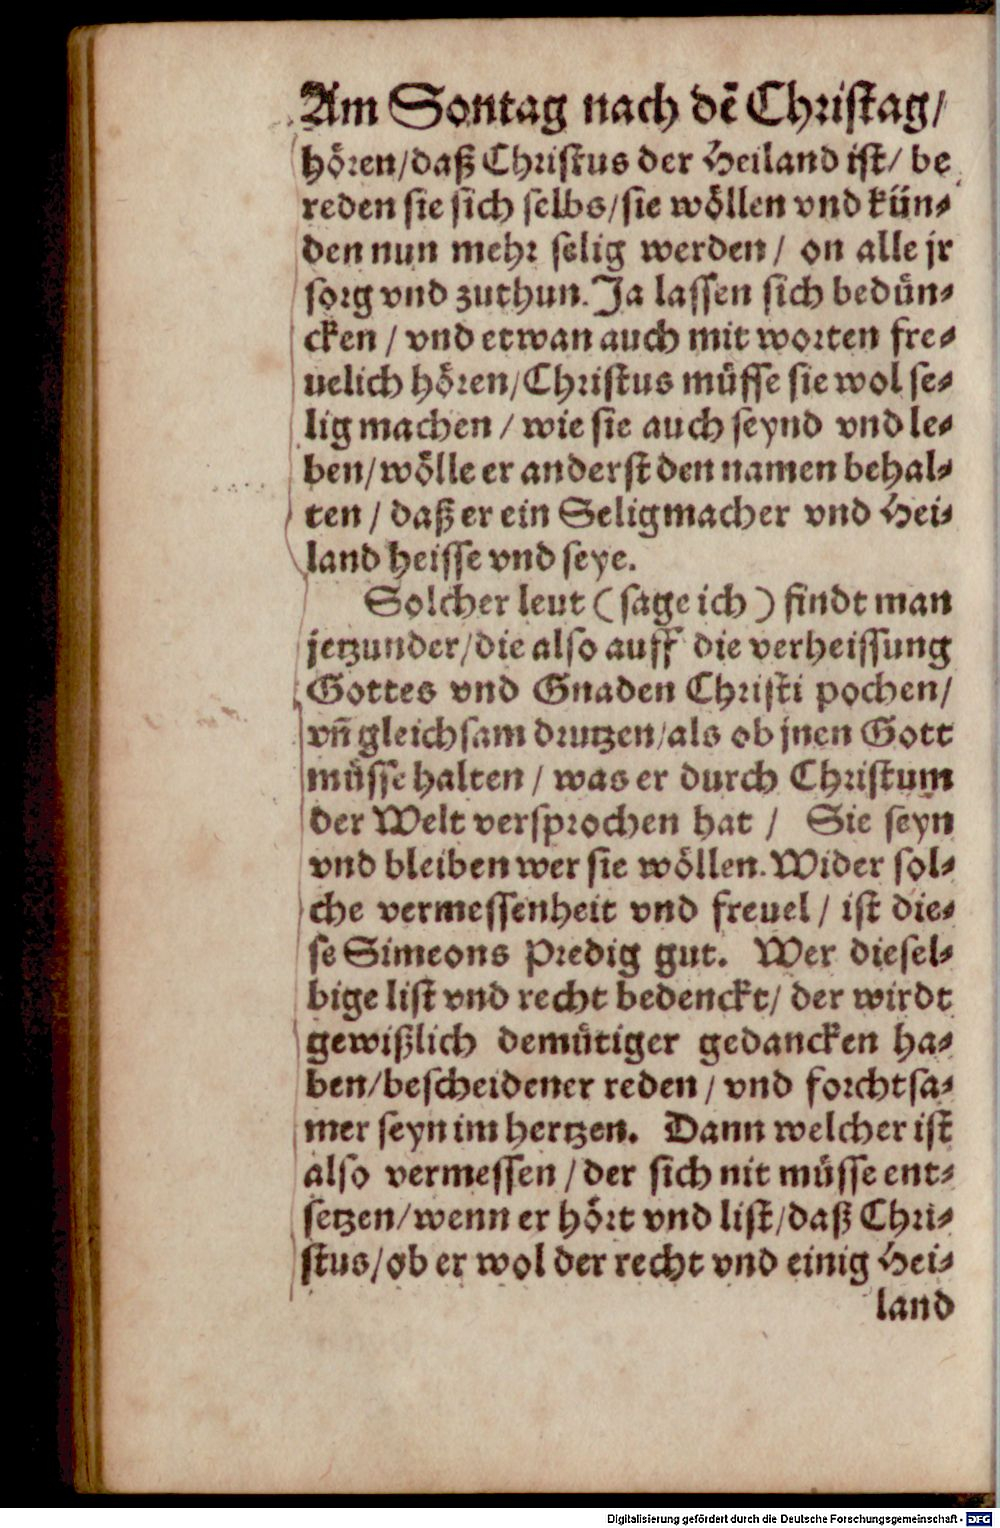 Am Sontag nach dẽ Christag/
hören/daß Christus der Heiland ist/ be
reden sie sich selbs/sie wöllen vnd kün-
den nun mehr selig werden/ on alle jr
sorg vnd zuthun. Ja lassen sich bedün-
cken / vnd etwan auch mit worten fre-
uelich hören/Christus müsse sie wol se-
lig machen / wie sie auch seynd vnd le-
ben/wölle er anderst den namen behal-
ten / daß er ein Seligmacher vnd Hei-
land heisse vnd seye.
Solcher leut (sage ich) findt man
jetzunder/die also auff die verheissung
Gottes vnd Gnaden Christi pochen/
vñ gleichsam drutzen/als ob jnen Gott
müsse halten / was er durch Christum
der Welt versprochen hat / Sie seyn
vnd bleiben wer sie wöllen. Wider sol-
che vermessenheit vnd freuel / ist die-
se Simeons Predig gut. Wer diesel-
bige list vnd recht bedenckt/ der wirdt
gewißlich demütiger gedancken ha-
ben/bescheidener reden / vnd forchtsa-
mer seyn im hertzen. Dann welcher ist
also vermessen / der sich nit müsse ent-
setzen/wenn er hört vnd list/daß Chri-
stus/ob er wol der recht vnd einig Hei-
land
Digitalisierung gefördert durch die Deutsche Forschungsgemeinschaft - DFG